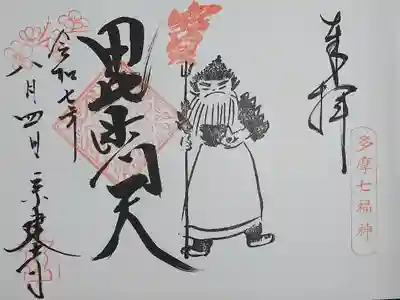 奉拝
多摩七福神
毘沙門天
令和七年
八月四日 宗建寺